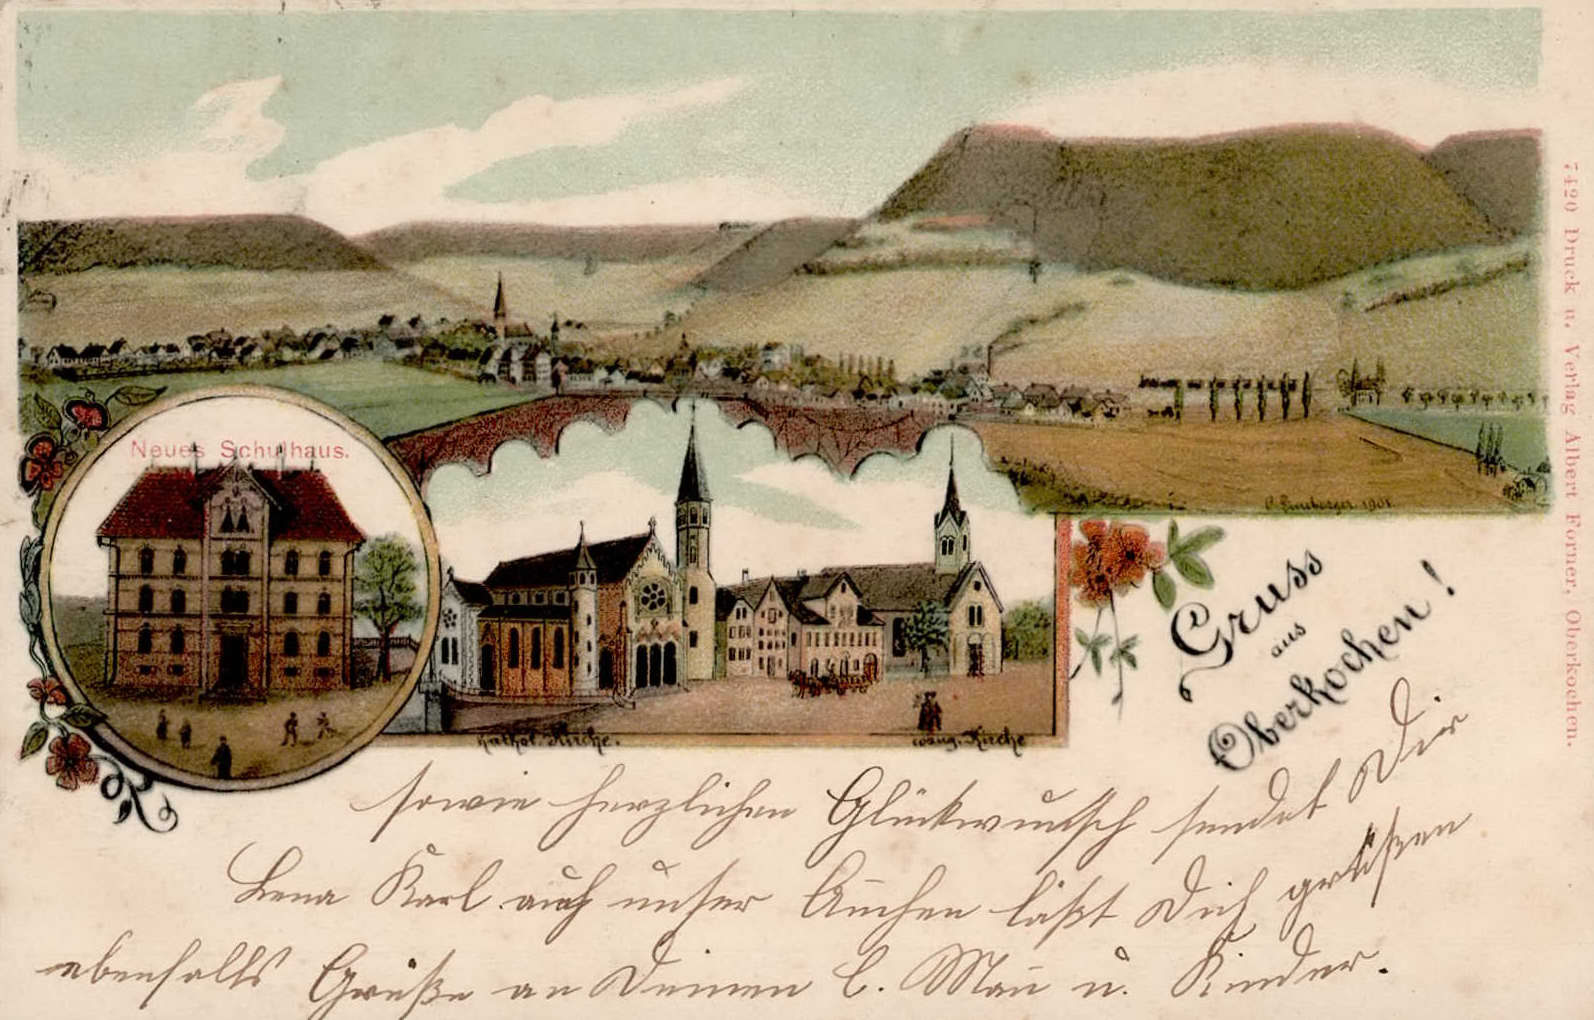 Neues Schulhaus.
Kathol. Kirche.
evang. Kirche
1901
Gruss
aus
Oberkochen!
7420 Druck u. Verlag Albert Forner, Oberkochen.
sowie herzlichen Glückwunsch sendet Dir
Lena Karl auch unser läßt Dich grüßen
ebenfalls Grüße an Deinen l. Man u. Kinder.